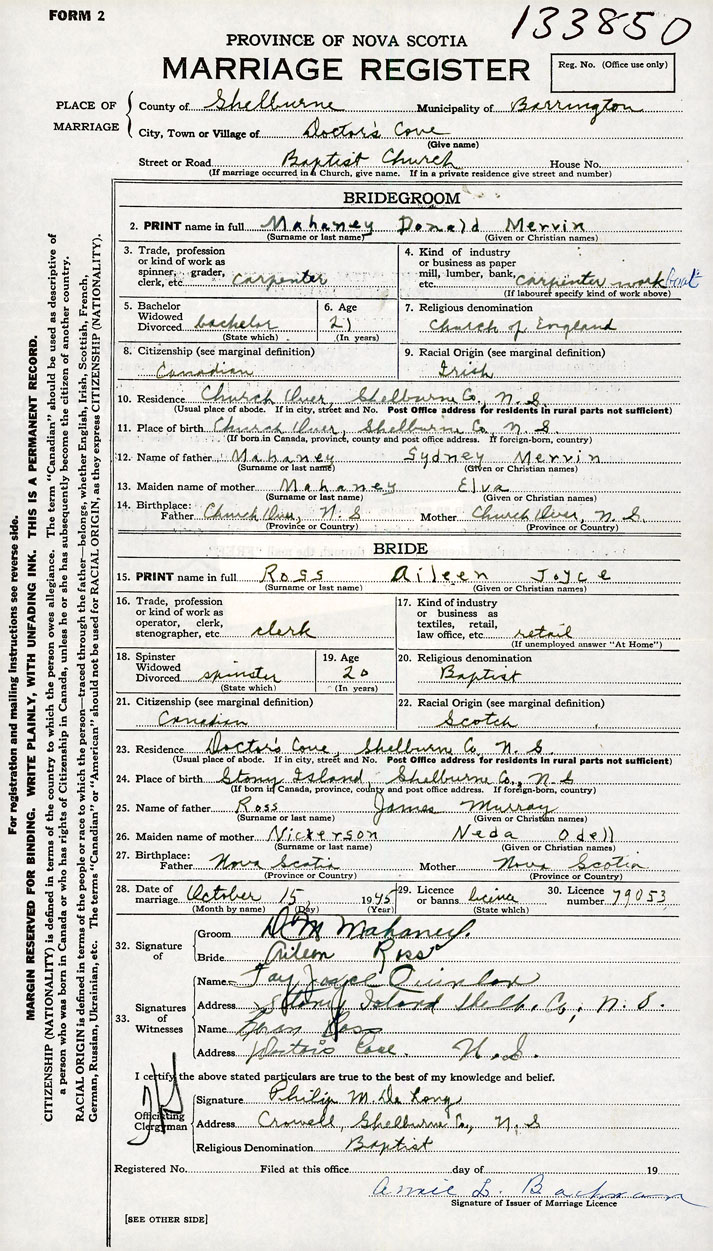 FORM 2
133850
PROVINCE OF NOVA SCOTIA
MARRIAGE REGISTER
Reg. No. (Office use only)
PLACE OF MARRIAGE
County of Shelburne Municipality of Barrington
City, Town or Village of Doctor's Cove
(Give name)
Street or Road Baptist Church House No.
(If marriage occurred in a Church, give name. If in a private residence give street and number)
BRIDEGROOM
2. PRINT name in full Mahaney Donald Mervin
(Surname or last name) (Given or Christian names)
3. Trade, profession or kind of work as spinner, grader, clerk, etc. carpenter
4. Kind of industry or business as paper mill, lumber, bank, etc. carpenter work boat
(If labourer specify kind of work above)
5. Bachelor Widowed Divorced bachelor
(State which)
6. Age 21
(In years)
7. Religious denomination
Church of England
8. Citizenship (see marginal definition)
Canadian
9. Racial Origin (see marginal definition)
Irish
10. Residence Church Over, Shelburne Co., N. S.
(Usual place of abode. If in city, street and No. Post Office address for residents in rural parts not sufficient)
11. Place of birth Church Over, Shelburne Co., N. S.
(If born in Canada, province, county and post office address. If foreign-born, country)
12. Name of father Mahaney Sydney Mervin
(Surname or last name) (Given or Christian names)
13. Maiden name of mother Mahaney Elva
(Surname or last name) (Given or Christian names)
14. Birthplace: Father Church Over, N. S. Mother Church Over, N. S.
(Province or Country) (Province or Country)
BRIDE
15. PRINT name in full Ross Aileen Joyce
(Surname or last name) (Given or Christian names)
16. Trade, profession or kind of work as operator, clerk, stenographer, etc. clerk
17. Kind of industry or business as textiles, retail, law office, etc. retail
(If unemployed answer "At Home")
18. Spinster Widowed Divorced spinster
(State which)
19. Age 20
(In years)
20. Religious denomination
Baptist
21. Citizenship (see marginal definition)
Canadian
22. Racial Origin (see marginal definition)
Scotch
23. Residence Doctor's Cove, Shelburne Co., N. S.
(Usual place of abode. If in city, street and No. Post Office address for residents in rural parts not sufficient)
24. Place of birth Stony Island, Shelburne Co., N. S
(If born in Canada, province, county and post office address. If foreign-born, country)
25. Name of father Ross James Murray
(Surname or last name) (Given or Christian names)
26. Maiden name of mother Nickerson Neda Odell
(Surname or last name) (Given or Christian names)
27. Birthplace: Father Nova Scotia Mother Nova Scotia
(Province or Country) (Province or Country)
28. Date of marriage October 15, 1945
(Month by name) (Day) (Year)
29. Licence or banns
(State which)
30. Licence number 79053
32. Signature of
Groom D M Mahaney
Bride Aileen Ross
33. Signatures of Witnesses
Name Joyce Quinlan
Address Stony Island Shelb. Co, N. S.
Name Ross
Address Doctors Cove. N. S.
I certify the above stated particulars are true to the best of my knowledge and belief.
Officiating Clergyman
Signature Philip M. De Long
Address Crowell, Shelburne Co., N. S
Religious Denomination Baptist
Registered No. Filed at this office day of 19
Annie L. Bachman
Signature of Issuer of Marriage Licence
[SEE OTHER SIDE]
For registration and mailing instructions see reverse side.
MARGIN RESERVED FOR BINDING. WRITE PLAINLY, WITH UNFADING INK. THIS IS A PERMANENT RECORD.
CITIZENSHIP (NATIONALITY) is defined in terms of the country to which the person owes allegiance. The term "Canadian" should be used as descriptive of
a person who was born in Canada or who has rights of Citizenship in Canada, unless he or she has subsequently become the citizen of another country.
RACIAL ORIGIN is defined in terms of the people or race to which the person—traced through the father—belongs, whether English, Irish, Scottish, French,
German, Russian, Ukrainian, etc. The terms "Canadian" or "American" should not be used for RACIAL ORIGIN, as they express CITIZENSHIP (NATIONALITY).